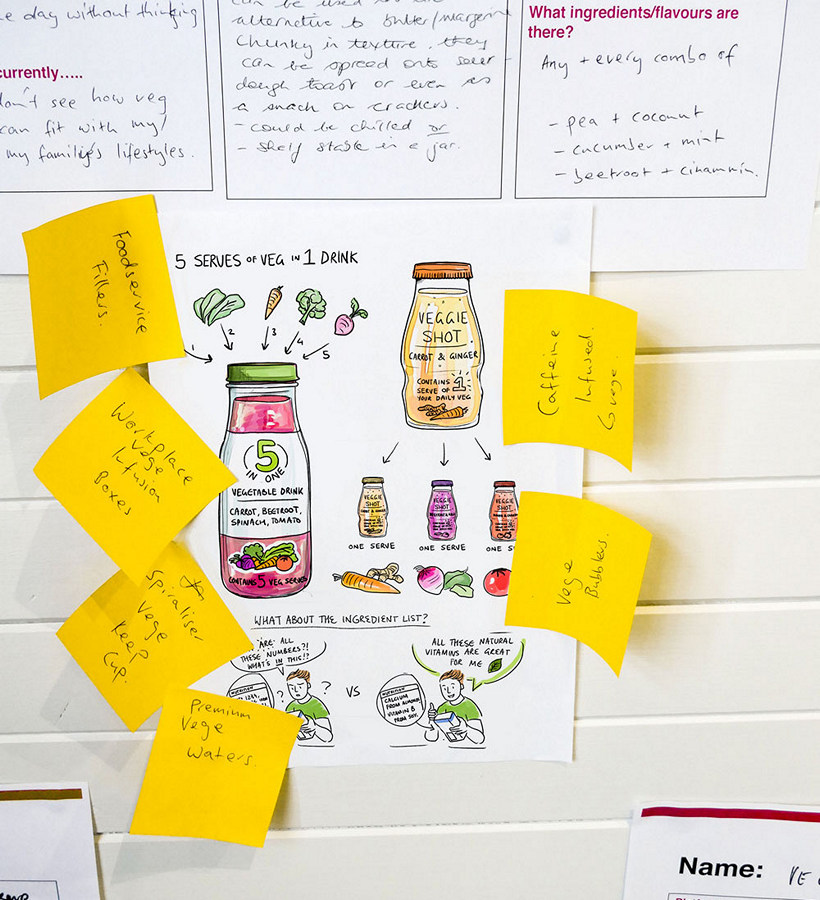 e day without thinking
currently.....
don't see how veg
can fit with my/
my family's lifestyles.
can be used as an
alternative to butter/margerine
Chunky in texture, they
can be spread onto sour
dough toast or even as
a snack on crackers.
- could be chilled or
- shelf stable in a jar.
What ingredients/flavours are
there?
Any + every combo of
- pea + coconut
- cucumber + mint
- beetroot + cinammin.
Foodservice
Fillers.
Workplace
Vege
Infusion
Boxes
Spiraliser
Vege
Keep
Cup.
Premium
Vege
Waters.
5 SERVES OF VEG IN 1 DRINK
1
2
3
4
5
5
IN ONE
VEGETABLE DRINK
CARROT, BEETROOT,
SPINACH, TOMATO
CONTAINS 5 VEG SERVES
VEGGIE
SHOT
CARROT & GINGER
CONTAINS 1
SERVE OF
YOUR DAILY VEG
VEGGIE
SHOT
VEGGIE
SHOT
VEGGIE
SHOT
ONE SERVE
ONE SERVE
ONE S
WHAT ABOUT THE INGREDIENT LIST?
ARE ALL
THESE NUMBERS?!
WHAT'S IN THIS!?
?
?
VS
ALL THESE NATURAL
VITAMINS ARE GREAT
FOR ME
CALCIUM
FROM ALMOND,
VITAMIN B
FROM SOY.
Caffeine
Infused
Vege.
Vege
Bubblers.
Name: VE